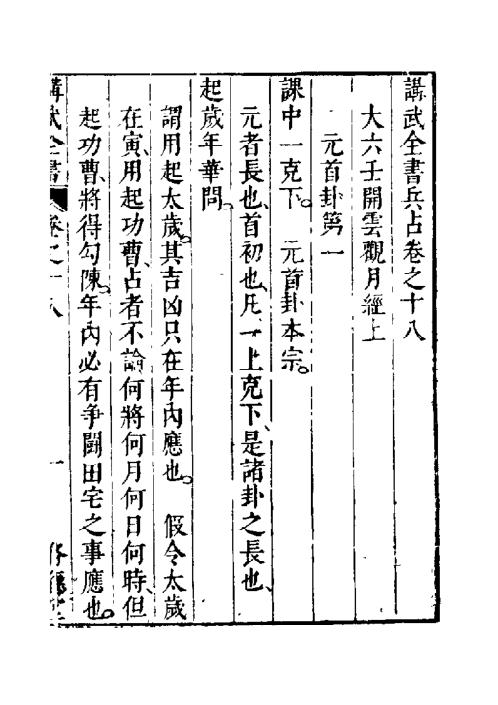 講武全書兵占卷之十八
大六壬開雲觀月經上
元首卦第一
課中一克下。 元首卦本宗。
元者長也、首初也、凡一上克下、是諸卦之長也、
起歲年華問。
謂用起太歲。其吉凶只在年內應也。 假令太歲
在寅、用起功曹、占者不論何將何月何日何時、但
起功曹、將得勾陳。年內必有爭鬭田宅之事應也。
講武全書 卷之十八 一